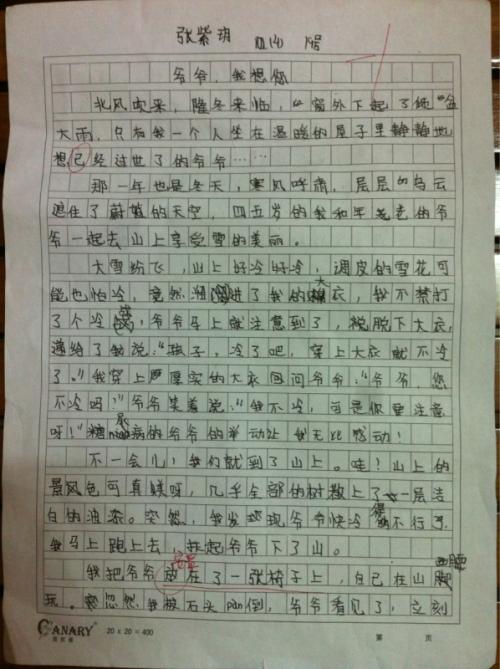 张紫玥 四(4) 19号
爷爷，我想您
北风吹来，隆冬来临，窗外下起了倾盆
大雨，只有我一个人坐在温暖的屋子里静静地
想已经过世了的爷爷……
那一年也是冬天，寒风呼肃，层层的乌云
遮住了蔚蓝的天空，四五岁的我和年老的爷
爷一起去山上享受雪的美丽。
大雪纷飞，山上好冷好冷，调皮的雪花可
能也怕冷，竟然溜进了我的大衣，我不禁打
了个冷，爷爷马上就注意到了，被脱下大衣，
递给了我说：“孩子，冷了吧，穿上大衣就不冷
了。”我穿上厚厚实的大衣回问爷爷：“爷爷，您
不冷吗？”爷爷笑着说：“我不冷，可是你要注意
呀！”糖尿病的爷爷的举动让我无比感动！
不一会儿，我们就到了山上。哇！山上的
景风色可真美呀，几乎全部的树敷上了一层洁
白的油漆。突然，我发现爷爷快冷得不行了，
我马上跑上去，扶起爷爷下了山。
安置
我把爷爷放在了一张椅子上，自己在山脚
玩。忽然我被石头pan倒，爷爷看见了，立刻
CANARY
20 x 20 = 400
第 页